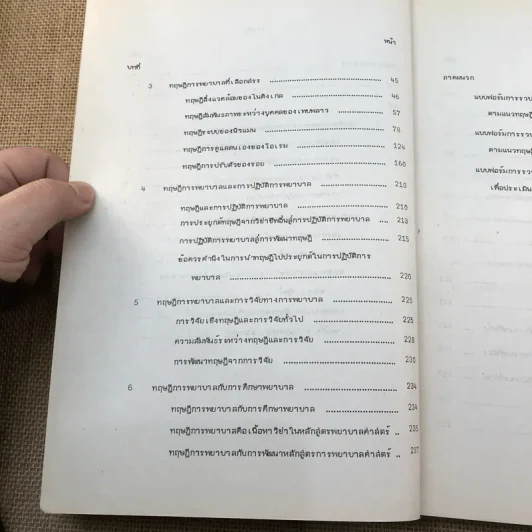 หน้า
บทที่
3 ทฤษฎีการพยาบาลที่เลือกสรร 45
ทฤษฎีสิ่งแวดล้อมของไนติงเกล 46
ทฤษฎีสัมพันธภาพระหว่างบุคคลของเพบพลาว 57
ทฤษฎีระบบของนิวแมน 78
ทฤษฎีการดูแลตนเองของโอเรม 124
ทฤษฎีการปรับตัวของรอย 166
4 ทฤษฎีการพยาบาลและการปฏิบัติการพยาบาล 210
ทฤษฎีและการปฏิบัติการพยาบาล 210
การประยุกต์ทฤษฎีจากวิชาชีพอื่นสู่การปฏิบัติการพยาบาล .... 213
การปฏิบัติการพยาบาลสู่การพัฒนาทฤษฎี 215
ข้อควรคำนึงในการนำทฤษฎีไปประยุกต์ในการปฏิบัติการ
พยาบาล 220
5 ทฤษฎีการพยาบาลและการวิจัยทางการพยาบาล 225
การวิจัยเชิงทฤษฎีและการวิจัยทั่วไป 225
ความสัมพันธ์ระหว่างทฤษฎีและการวิจัย 228
การพัฒนาทฤษฎีจากการวิจัย 230
6 ทฤษฎีการพยาบาลกับการศึกษาพยาบาล 234
ทฤษฎีการพยาบาลกับการศึกษาพยาบาล 234
ทฤษฎีการพยาบาลคือเนื้อหาวิชาในหลักสูตรพยาบาลศาสตร์ .. 235
ทฤษฎีการพยาบาลกับการพัฒนาหลักสูตรการพยาบาลศาสตร์ .. 237
ภาคผนวก
แบบฟอร์มการรวบ
ตามแนวทฤษฎี
แบบฟอร์มการรวบ
ตามแนวทฤษ
แบบฟอร์มการรว
เพื่อประเมิน